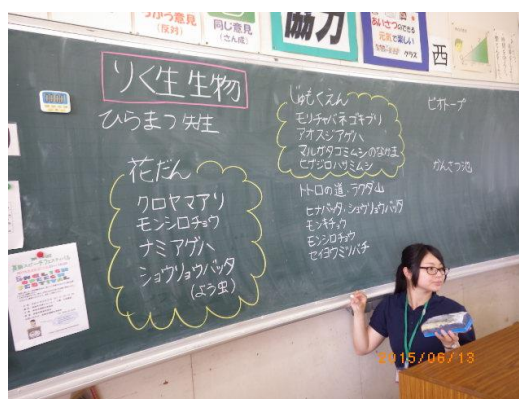 つかう意見
(反対)
同じ意見
(さんせい)
協力
あいさつのできる
元気で楽しい
クラス
西
りく生生物
ひらまつ先生
花だん
クロヤマアリ
モンシロチョウ
ナミアゲハ
ショウリョウバッタ
(よう虫)
じゅもくえん
モリチャバネゴキブリ
アオスジアゲハ
マルガタゴミムシのなかま
セアジロハサミムシ
トトロの道・ラクダ山
ヒナバッタ・ショウリョウバッタ
モンキチョウ
モンシロチョウ
セイヨウミツバチ
ビオトープ
かんさつ池
ENGLISH
SPEECH
FESTIVAL
2015/06/13